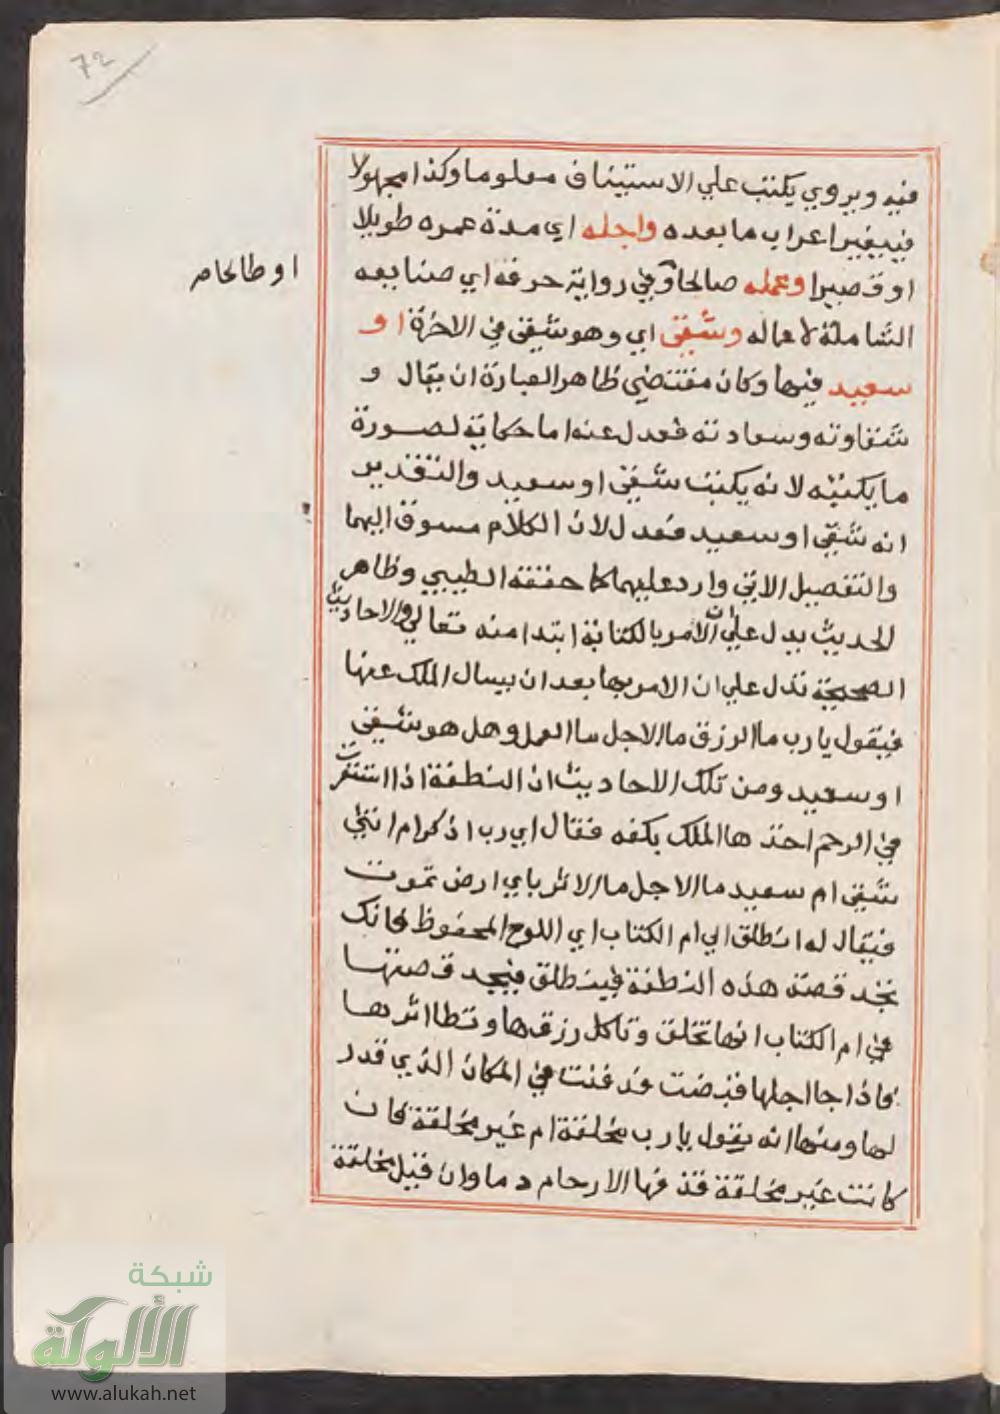 72
فيه ويروي يكتب علي الاستيناف معلوما وكذا مجهولا
فيتغير اعراب ما بعده واجله اي مدة عمره طويلا
او قصيرا وعمله صالحا وفي رواية حرفه اي صنايعه
او طالحا صح
الشاملة لاعماله وشقي اي وهو شقي في الاخرة او
سعيد فيها وكان مقتضي ظاهر العبارة ان يقال و
شقاوته وسعادته فعدل عنه اما حكاية لصورة
ما يكتبه لانه يكتب شقي او سعيد والتقدير
انه شقي او سعيد فعدل لان الكلام مسوق اليهما
والتفصيل الاتي وارد عليهما كما حققه الطيبي وظاهر
الحديث يدل علي ان الامر بالكتابة ابتدا منه تعالي والاحاديث
الصحيحة تدل علي ان الامر بها بعد ان يسال الملك عنها
فيقول يا رب ما الرزق ما الاجل ما العمل وهل هو شقي
او سعيد ومن تلك الاحاديث ان النطفة اذا استقرت
في الرحم اخذها الملك بكفه فقال اي رب اذكر ام انثي
شقي ام سعيد ما الاجل ما الاثر باي ارض تموت
فيقال له انطلق الي ام الكتاب اي اللوح المحفوظ فانك
تجد قصة هذه النطفة فينطلق فيجد قصتها
في ام الكتاب انها تخلق وتاكل رزقها وتطا اثرها
فاذا جا اجلها قبضت فدفنت في المكان الذي قدر
لها ومنها انه يقول يا رب مخلقة ام غير مخلقة فان
كانت غير مخلقة قذفها الارحام دما وان قيل مخلقة
شبكة
الألوكة
www.alukah.net